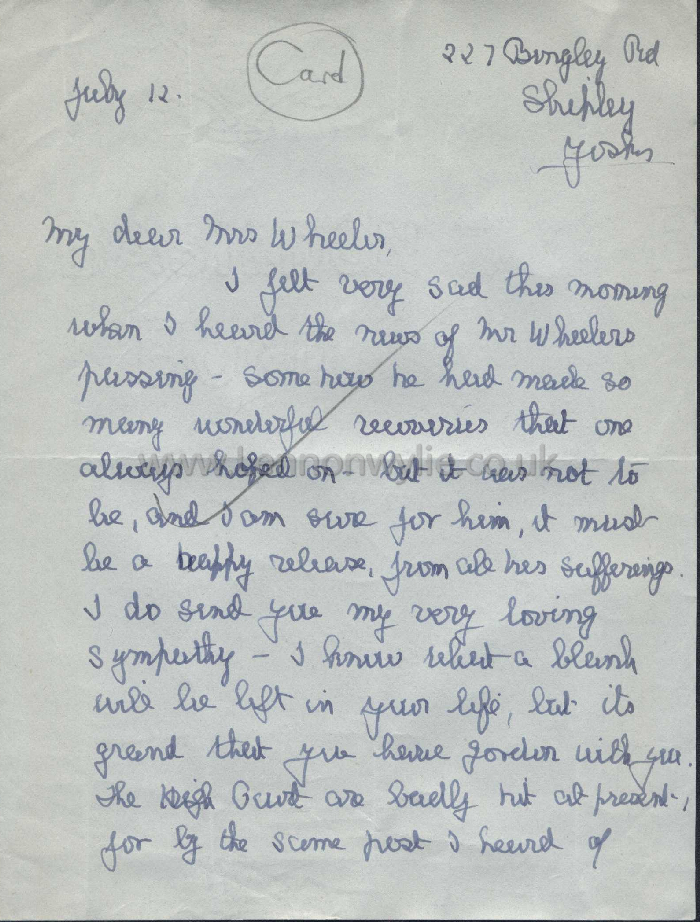 Card
227 Bingley Rd
July 12.
Shipley
Yorks
My dear Mrs Wheeler,
I felt very sad this morning
when I heard the news of Mr Wheelers
passing - somehow he had made so
many wonderful recoveries that one
always hoped on - but it was not to
www.lennonwylie.co.uk
be, and I am sure for him, it must
be a happy release, from all his sufferings.
I do send you my very loving
sympathy - I know what a blank
will be left in your life, but its
grand that you have Gordon with you.
The High Court are badly hit at present,
for by the same post I heard of